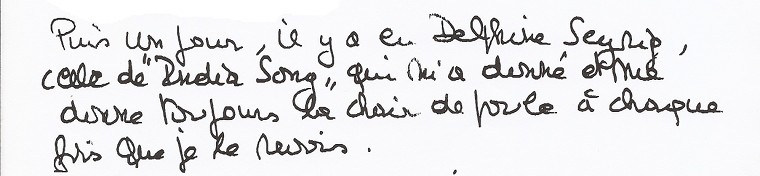 Puis un jour, il y a eu Delphine Seyrig,
celle de "India Song", qui m'a donné et me
donne toujours la chair de poule à chaque
fois que je le revois.